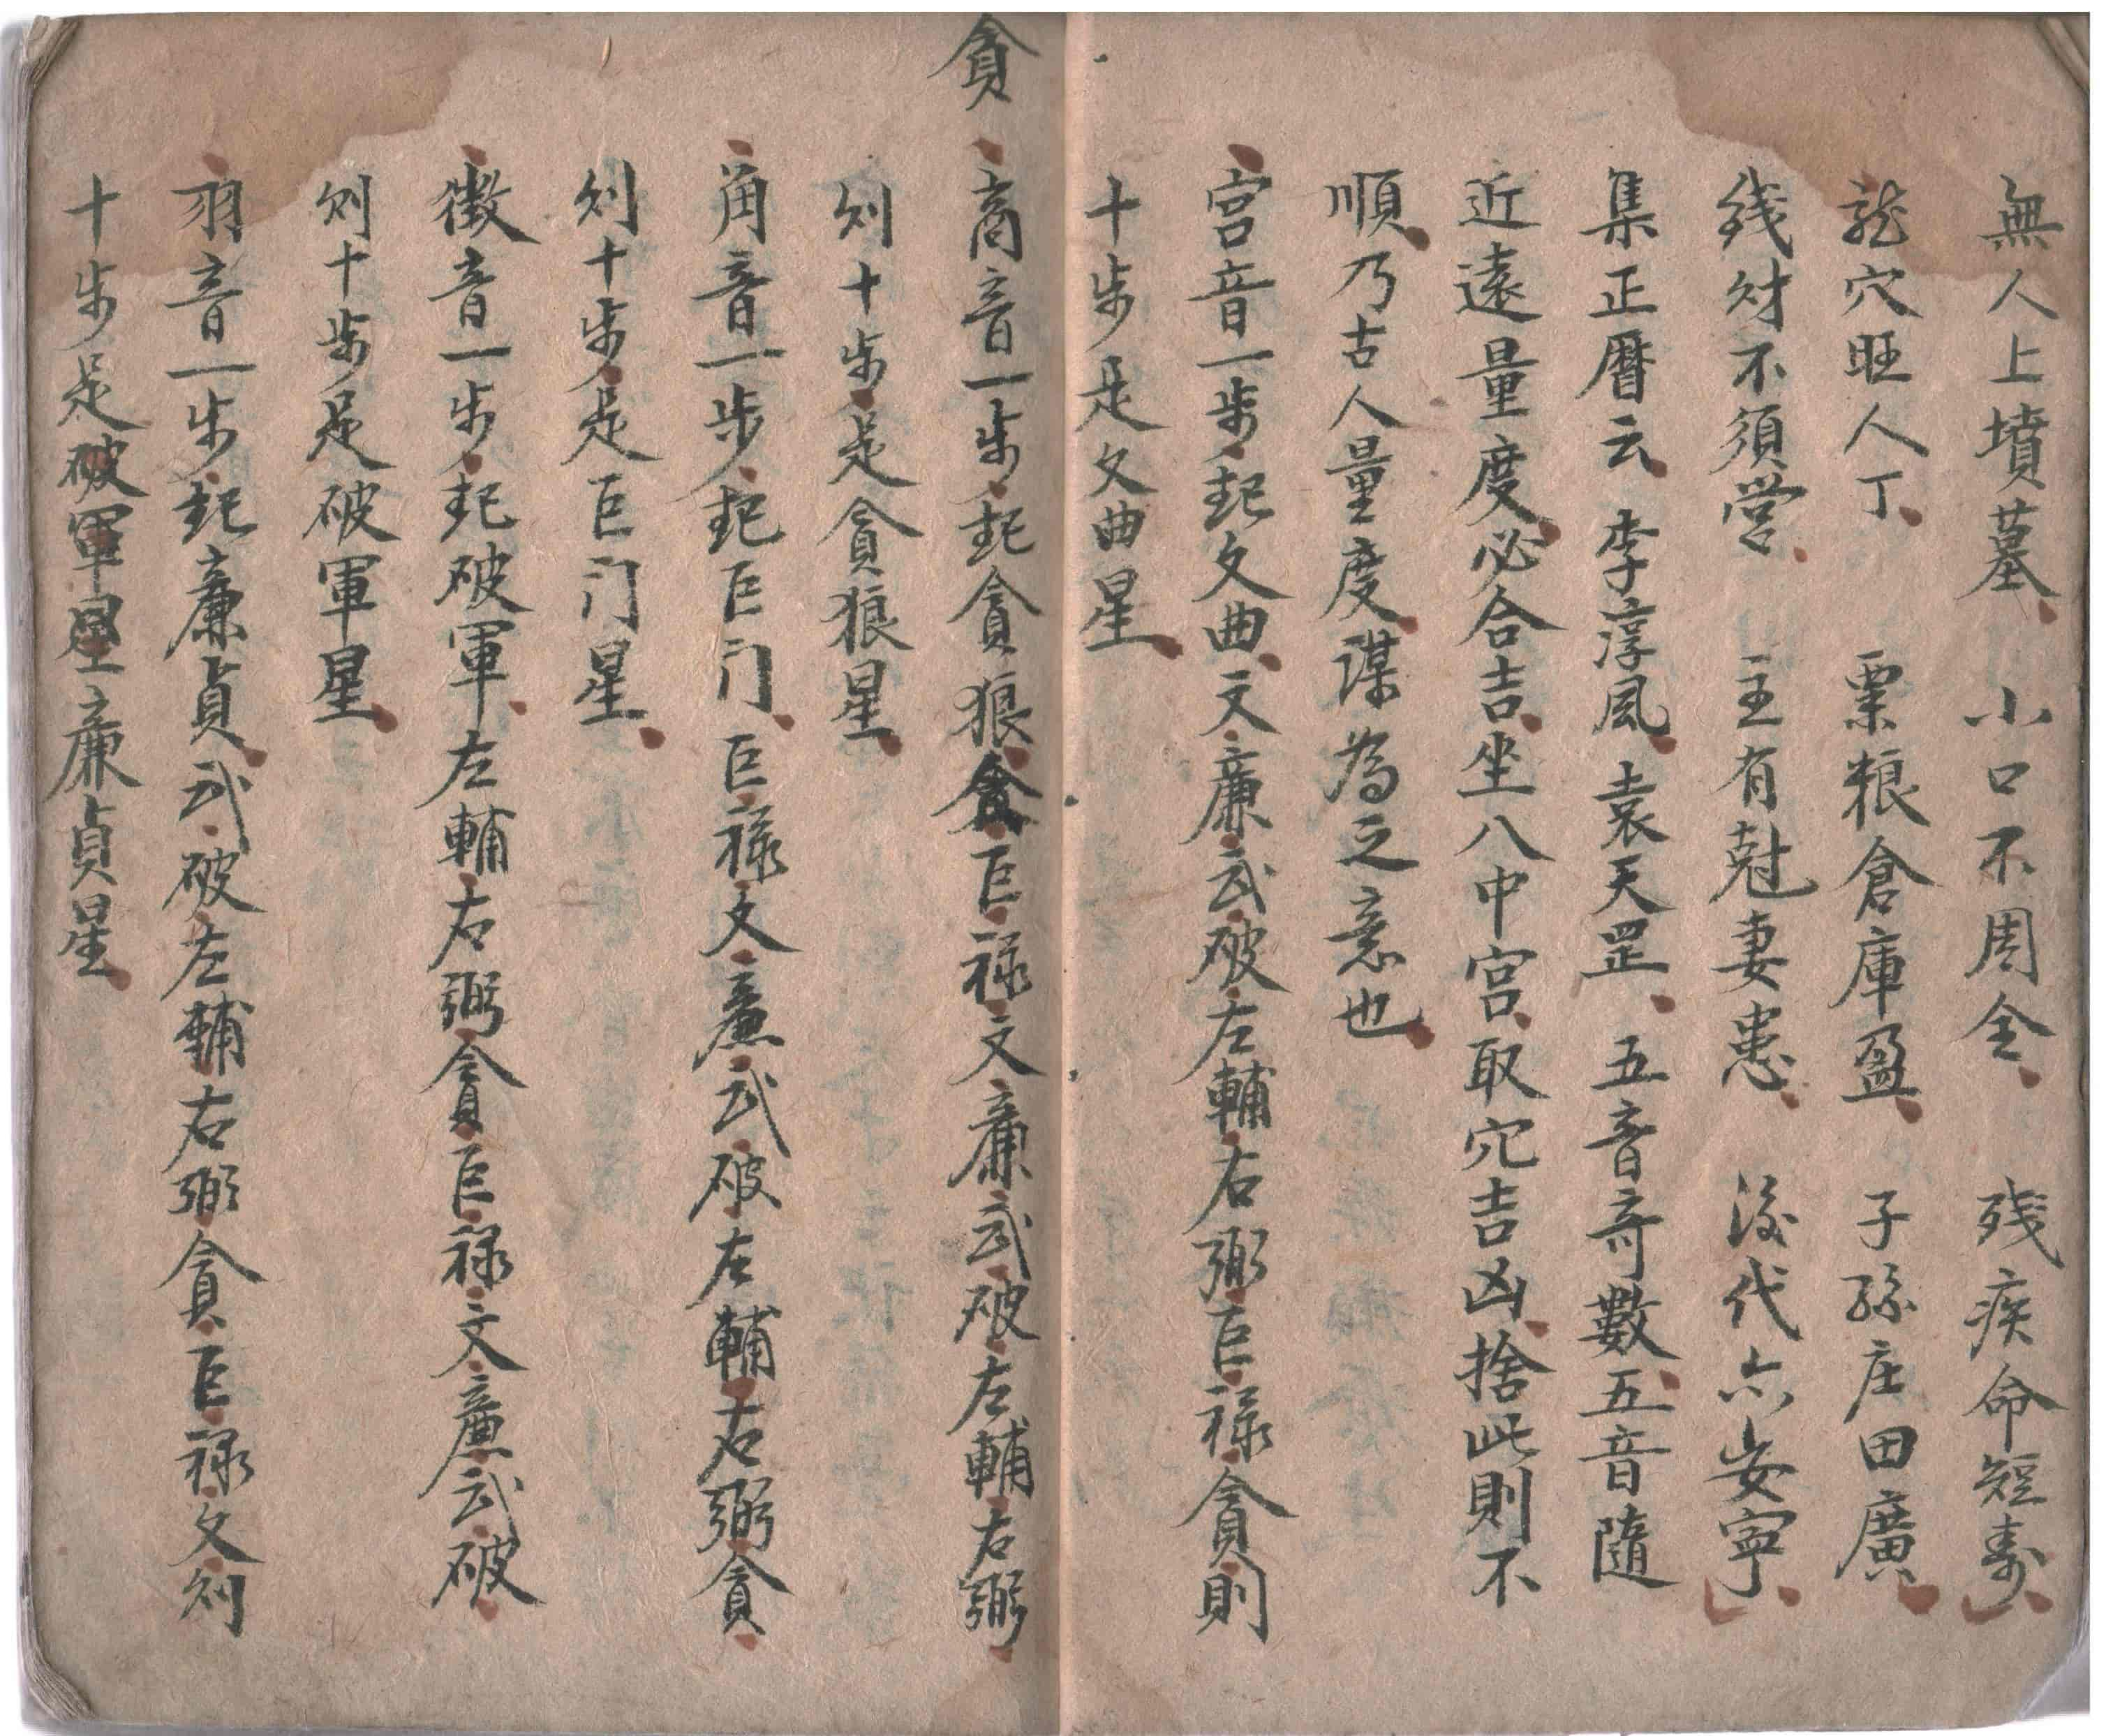 無人上墳墓 小口不周全 殘疾命短壽
龍穴旺人丁 粟粮倉庫盈 子孫庄田廣
錢財不須营 主有尅妻患 後代六安寧
集正曆云 李淳風 袁天罡 五音奇數五音隨
近遠量度必合吉坐八中宮取穴吉凶捨此則不
順乃古人量度謀為之意也
宮音一步起文曲文廉武破左輔右弼巨祿貪則
十步是文曲星
貪
商音一步起貪狼貪巨祿文廉武破左輔右弼
则十步是貪狼星
角音一步起巨门巨祿文廉武破左輔右弼貪
则十步是巨门星
徵音一步起破軍左輔右弼貪巨祿文廉武破
则十步是破軍星
羽音一步起廉貞武破左輔右弼貪巨祿文则
十步是破軍星廉貞星